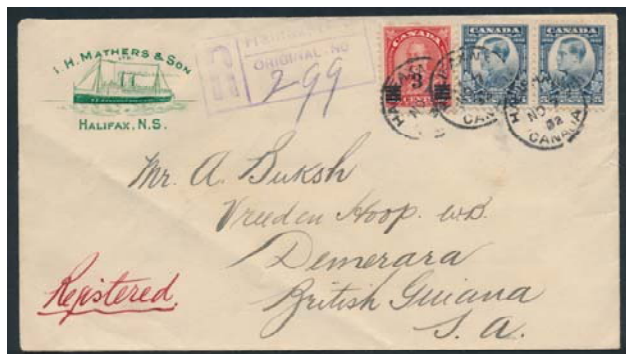 I. H. MATHERS & SON
LTD.
HALIFAX, N.S.
R
ORIGINAL NO
299
CANADA
3
CANADA
5 5
CANADA
5 5
HALIFAX
NO 7
32
CANADA
Mr. A. Buksh
Vreed en Hoop. W.B.
Demerara
British Guiana
S. A.
Registered.